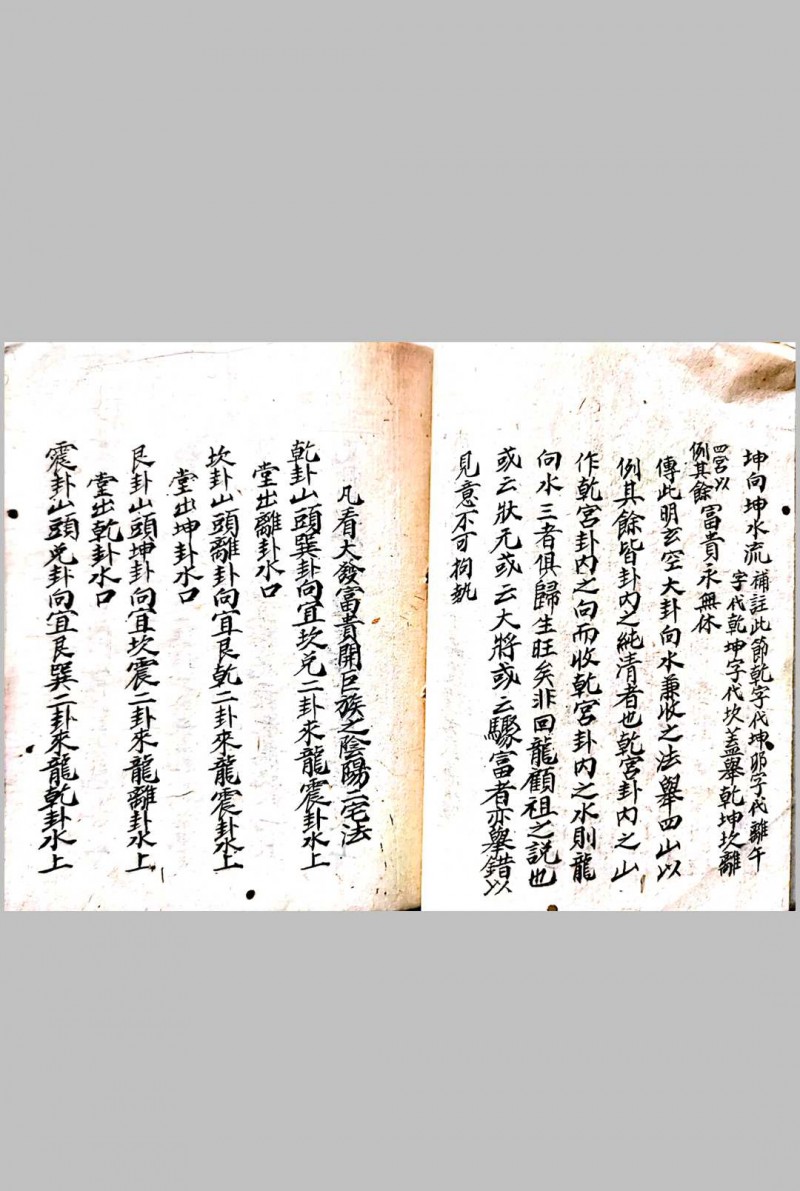 坤向坤水流補註此節乾字代坤卯字代離午
字代乾坤字代坎盖舉乾坤坎離
四宮以
例其餘富貴永無休
傳此明玄空大卦向水兼收之法舉四山以
例其餘皆卦内之純清者也乾宮卦内之山
作乾宮卦内之向而收乾宮卦内之水則龍
向水三者俱歸生旺矣非回龍顧祖之説也
或云狀元或云大將或云驟富者亦舉錯以
見意不可拘執
凡看大發富貴開巨族之陰陽二宅法
乾卦山頭巽卦向宜坎兌二卦來龍震卦水上
堂出離卦水口
坎卦山頭離卦向宜艮乾二卦來龍震卦水上
堂出坤卦水口
艮卦山頭坤卦向宜坎震二卦來龍離卦水上
堂出乾卦水口
震卦山頭兌卦向宜艮巽二卦來龍乾卦水上